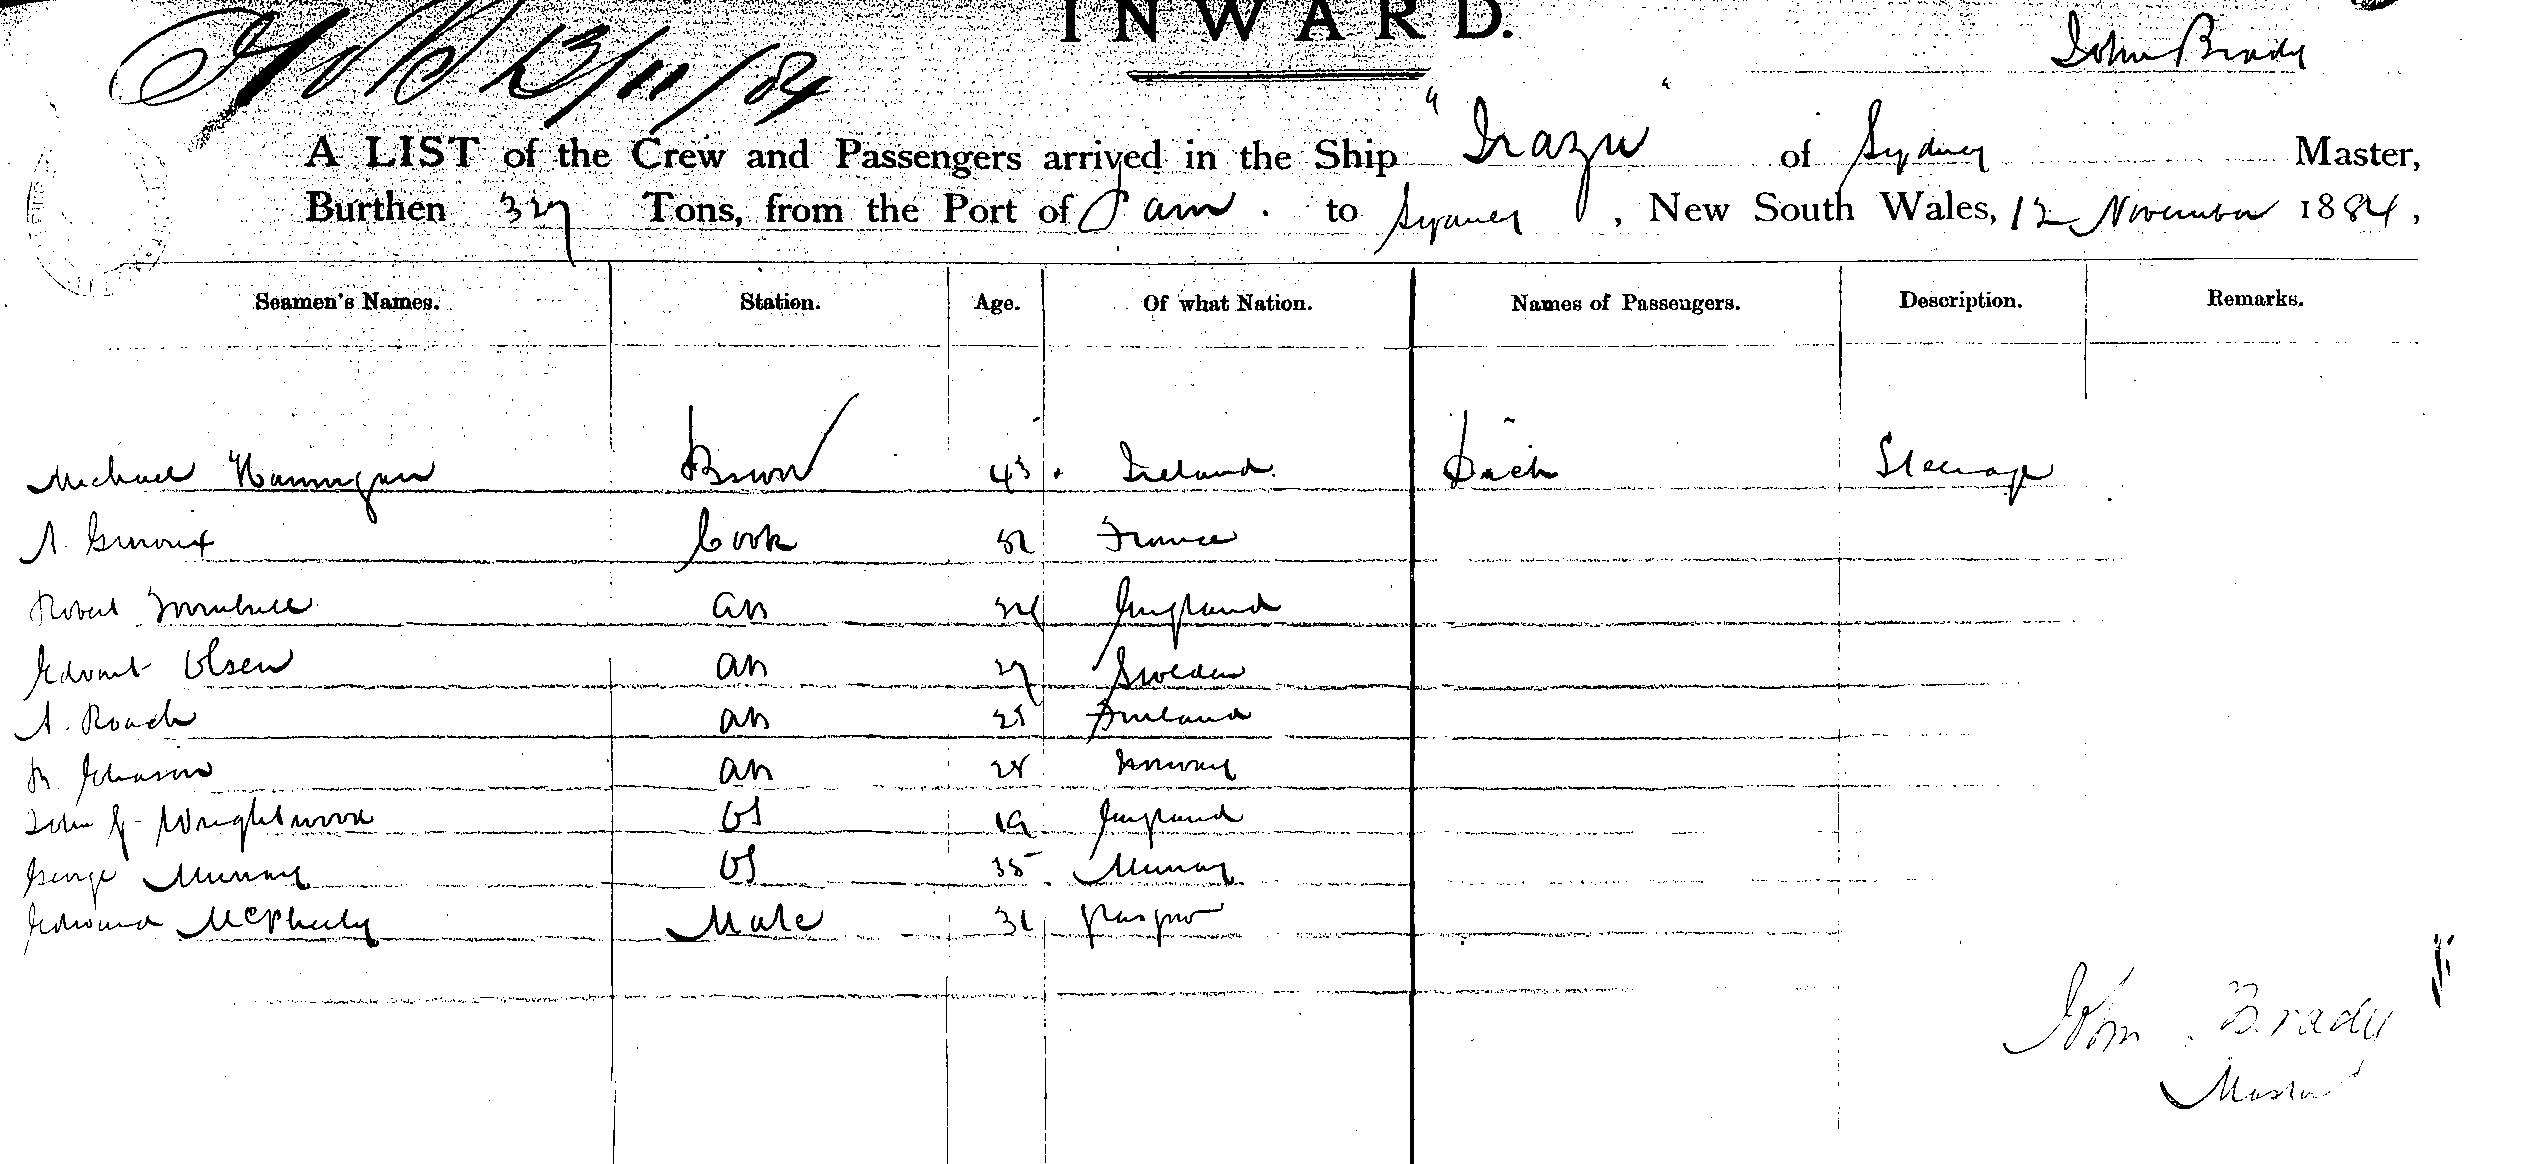 INWARD.
13/11/84
John Brady
A LIST of the Crew and Passengers arrived in the Ship "Irazu" of Sydney Master,
Burthen 327 Tons, from the Port of Pam. to Sydney, New South Wales, 12 November 1884,
Seamen's Names. Station. Age. Of what Nation. Names of Passengers. Description. Remarks.
Michael Hannigan 43 Ireland. Steerage
A. Cook 52 France
Robert ab 24 England
Edvart Olsen ab 27 Sweden
A. Roach ab 25 Finland
ab 28 Norway
John Wrightwood OS 19 England
George Murray OS 35 Murray
Edward McPheely Mate 31 Glasgow
John Brady
Master